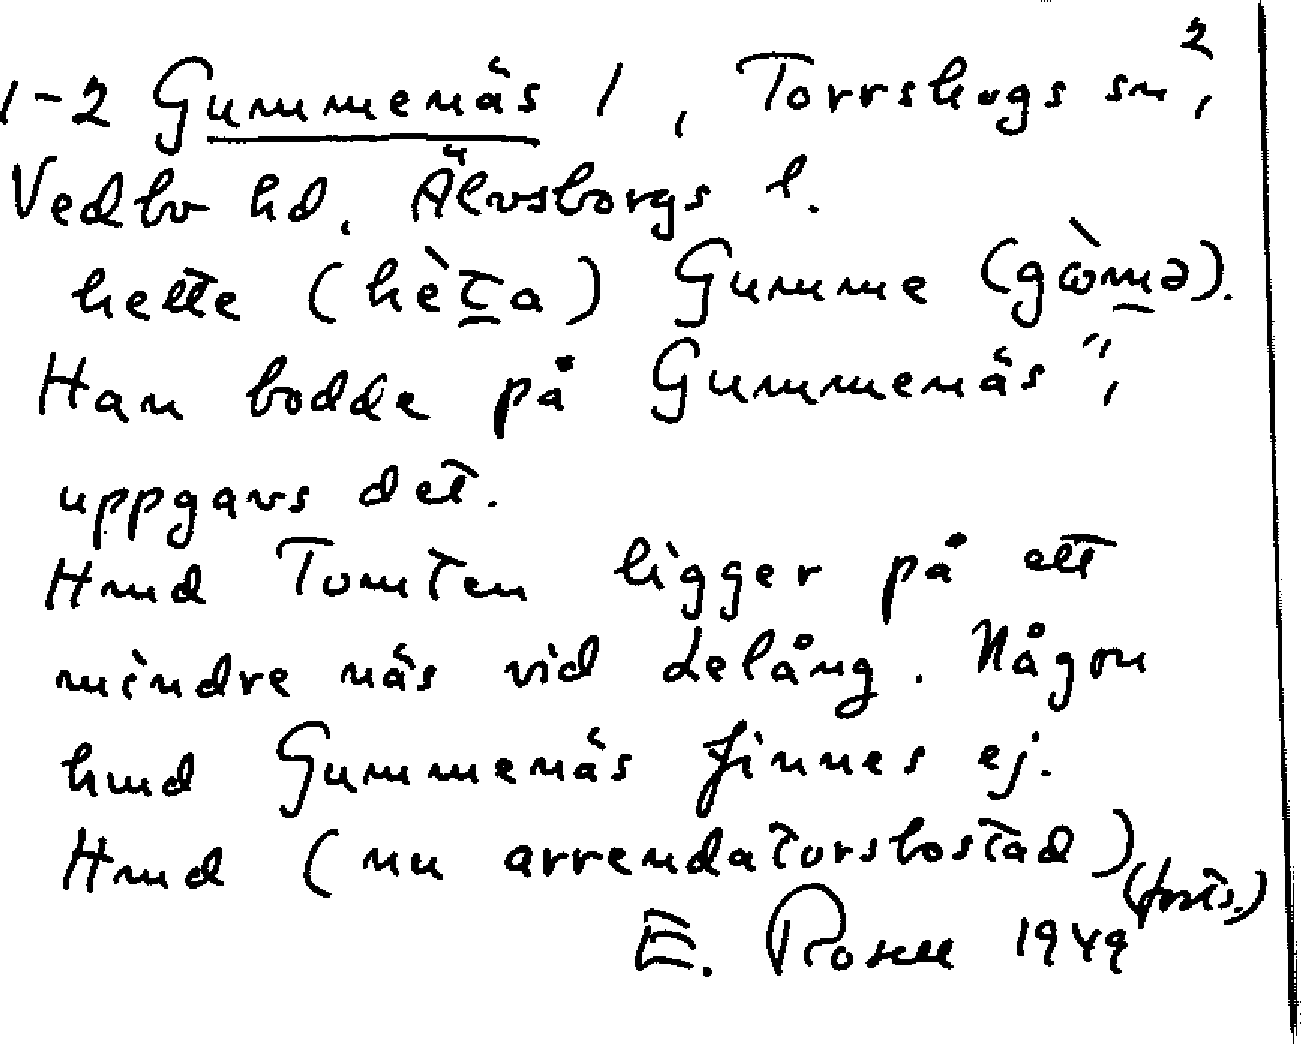 2
1-2 Gummenäs 1, Torrskogs sn,
Vedbo hd, Älvsborgs l.
hette (hèta) Gumme (gὼmə).
Han bodde på Gummenäs",
uppgavs det.
Hmd Tomten ligger på ett
mindre näs vid Lelång. Någon
hmd Gummenäs finnes ej.
Hmd (nu arrendatorsbostad)
(forts.)
E. Rosell 1949